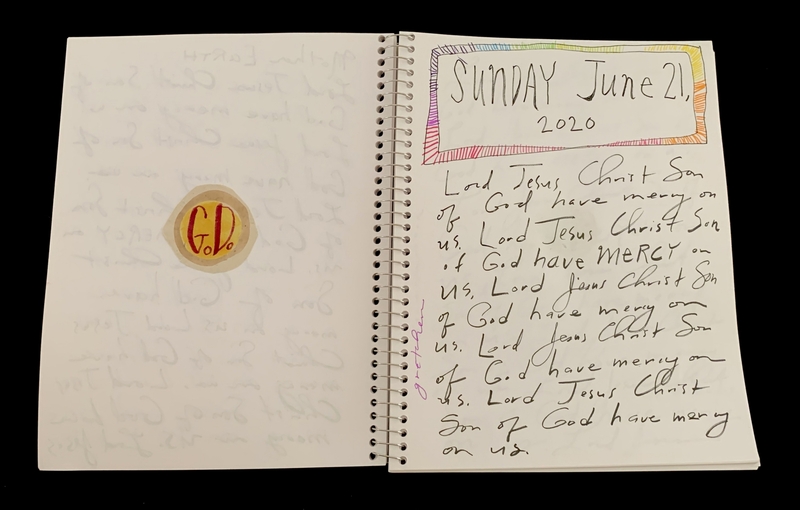 G.D.
SUNDAY June 21,
2020
Lord Jesus Christ Son
of God have mercy on
us. Lord Jesus Christ Son
of God have MERCY on
us. Lord Jesus Christ Son
of God have mercy on
us. Lord Jesus Christ Son
of God have mercy on
us. Lord Jesus Christ
Son of God have mercy
on us.
gretchen